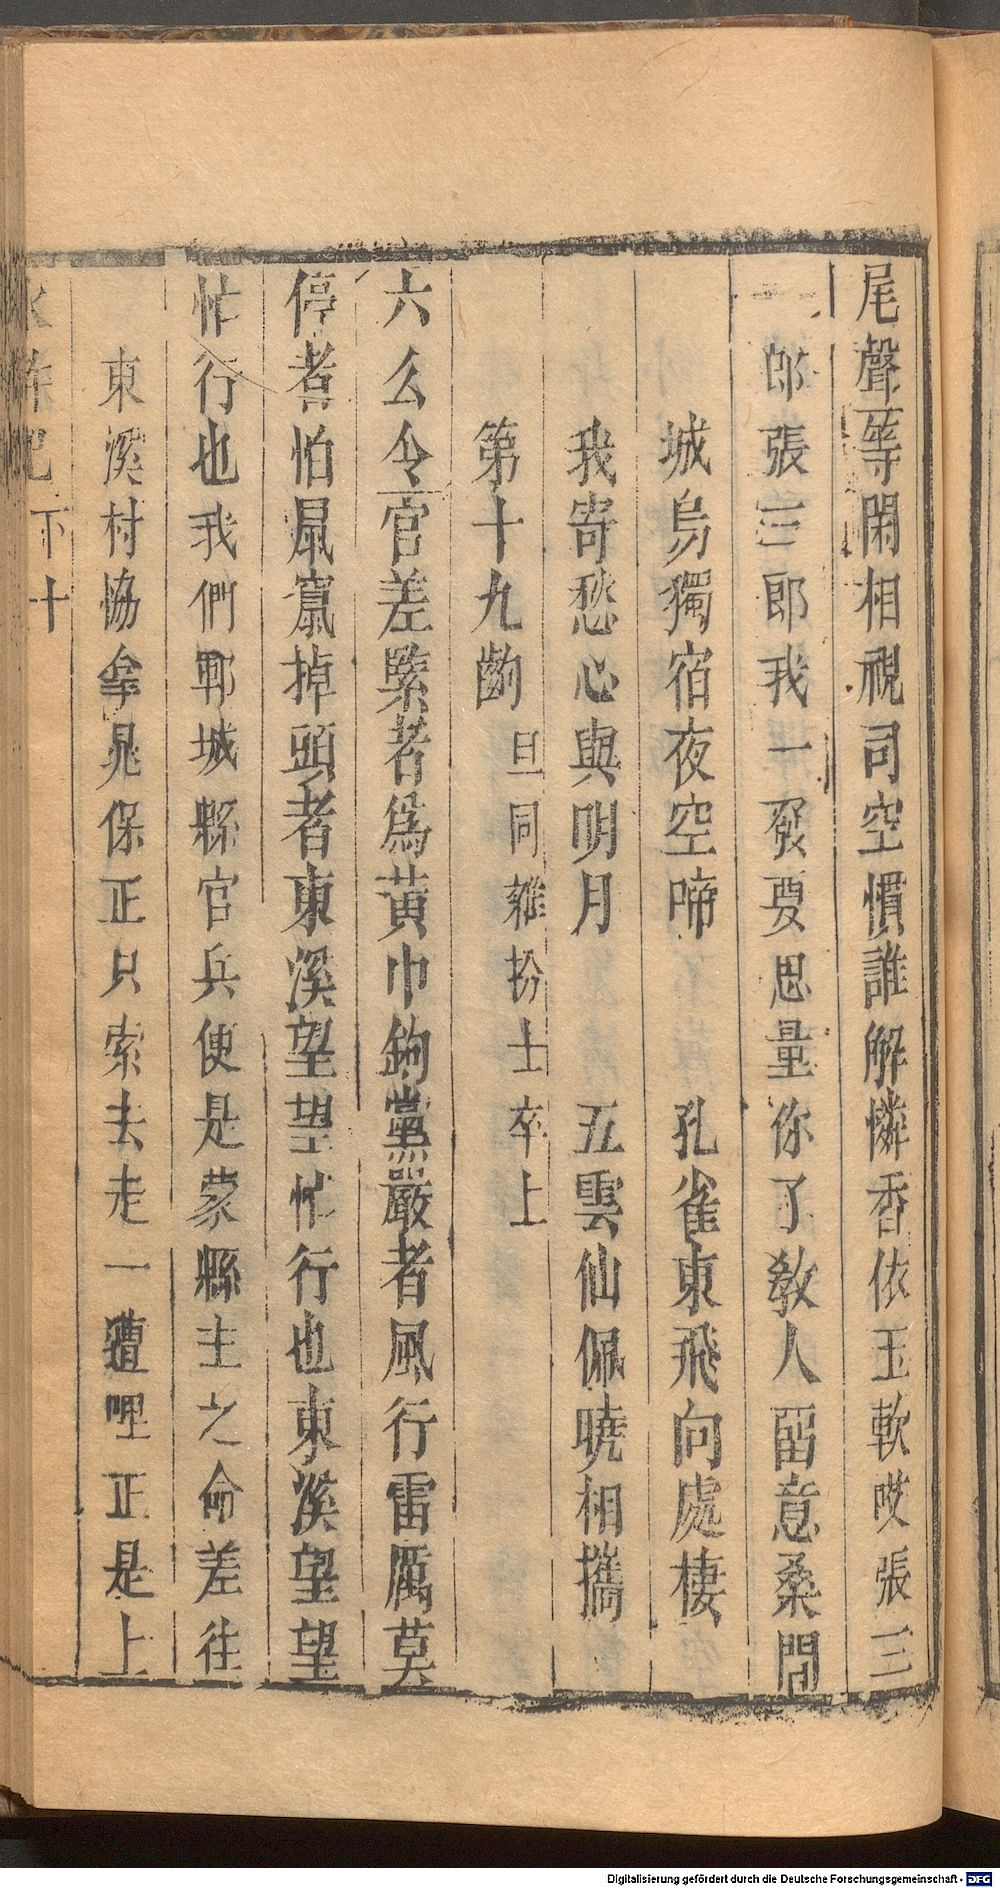 尾聲等閑相視司空慣誰解憐香依玉軟哎張三
郎張三郎我一發要思量你了敎人畱意桑間
城烏獨宿夜空啼　孔雀東飛向處棲
我寄愁心與明月　五雲仙佩曉相攜
第十九齣 旦同雜扮士卒上
六么令官差緊者爲黃巾鉤黨嚴者風行雷厲莫
停者怕鼠竄掉頭者東溪望望忙行也東溪望望
忙行也我們鄆城縣官兵便是蒙縣主之命差往
東溪村協拿晁保正只索去走一遭哩正是上
水滸記 下十
Digitalisierung gefördert durch die Deutsche Forschungsgemeinschaft - DFG